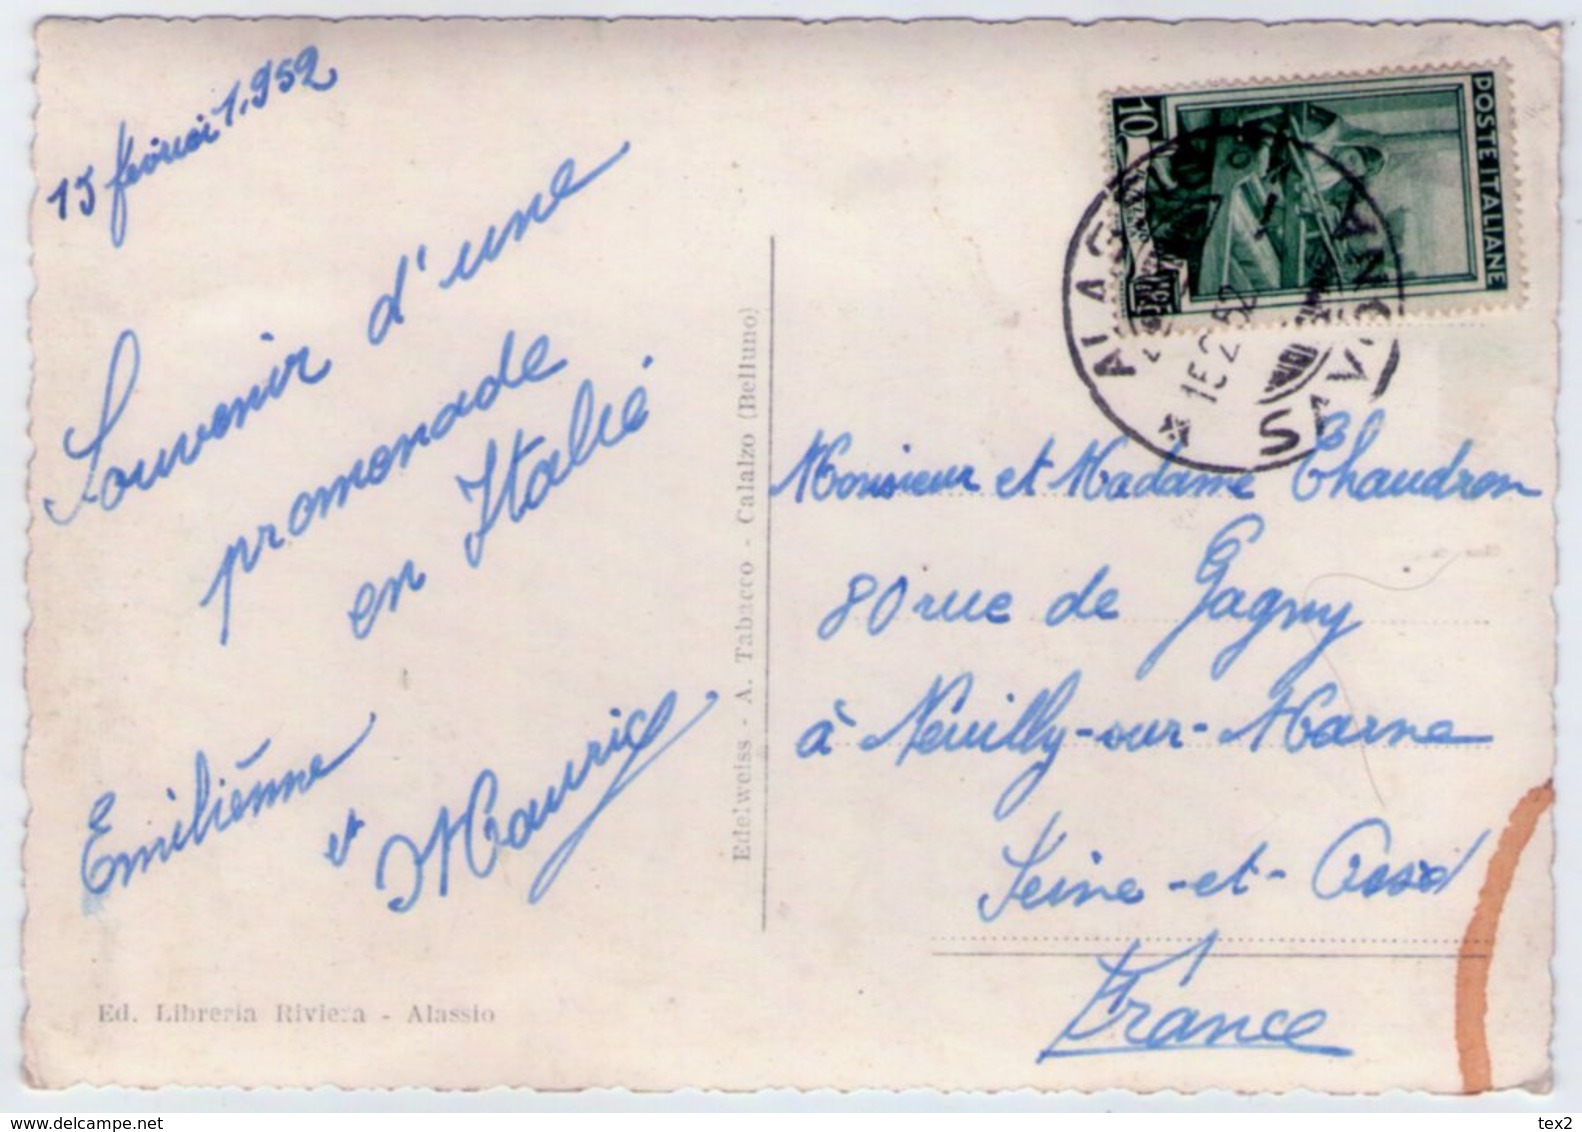 15 février 1.952
Souvenir d'une
promenade
en Italie
Emilienne
et Maurice
Ed. Libreria Riviera - Alassio
Edelweiss - A. Tabacco - Calalzo (Belluno)
10
POSTE ITALIANE
SAVONA
15.2.52
Monsieur et Madame Chaudron
80 rue de Gagny
à Neuilly-sur-Marne
Seine-et-Oise
France
tex2
www.delcampe.net